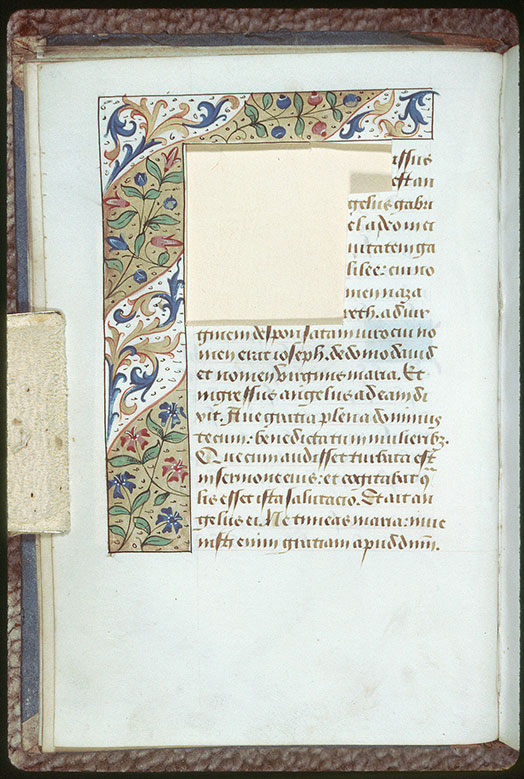 issus
est an
gelus gabri
el a deo in ci
uitatem ga
lilee: cui no
men naza
reth. ad uir
ginem desponsatam uiro cui no
men erat ioseph. de domo dauid
et nomen virginis maria. Et
ingressus angelus ad eam di
xit. Aue gratia plena dominus
tecum: benedicta tu in mulieribz.
Que cum audisset turbata est
in sermone eius: et cogitabat q
lis esset ista salutacio. Et ait an
gelus ei. Ne timeas maria: inue
nisti enim gratiam apud dum.